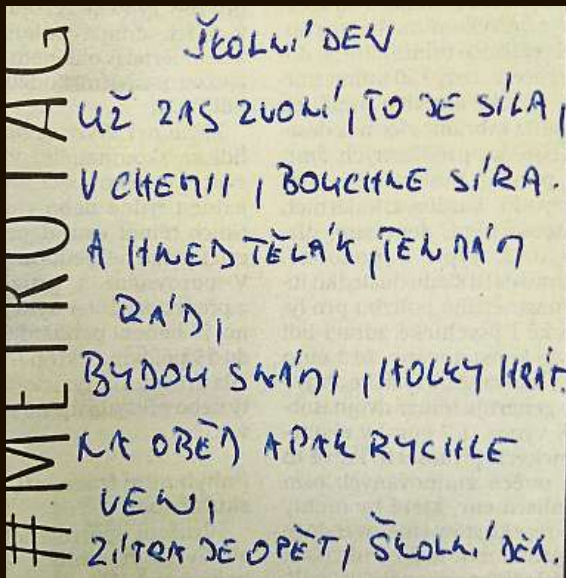 ŠKOLNÍ DEN
UŽ ZAS ZVONÍ, TO JE SÍLA,
V CHEMII, BOUCHNE SÍRA.
A HNED TĚLÁK, TEN MÁM
RÁD,
BUDOU SNÁMI, HOLKY HRÁT.
NA OBĚD APAK RYCHLE
VEN,
ZÍTRA JE OPĚT, ŠKOLNÍ DEN.
#METROTAG